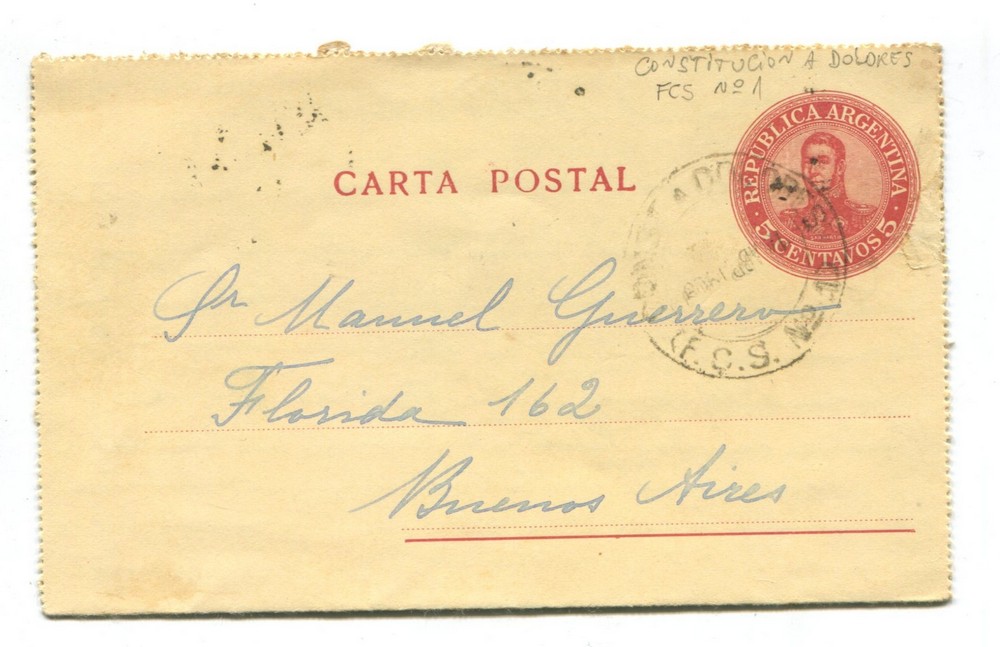 CONSTITUCION A DOLORES
FCS Nº 1
REPUBLICA ARGENTINA
5 CENTAVOS 5
CARTA POSTAL
(F.C.S. Nº
Sr Manuel Guerrero
Florida 162
Buenos Aires